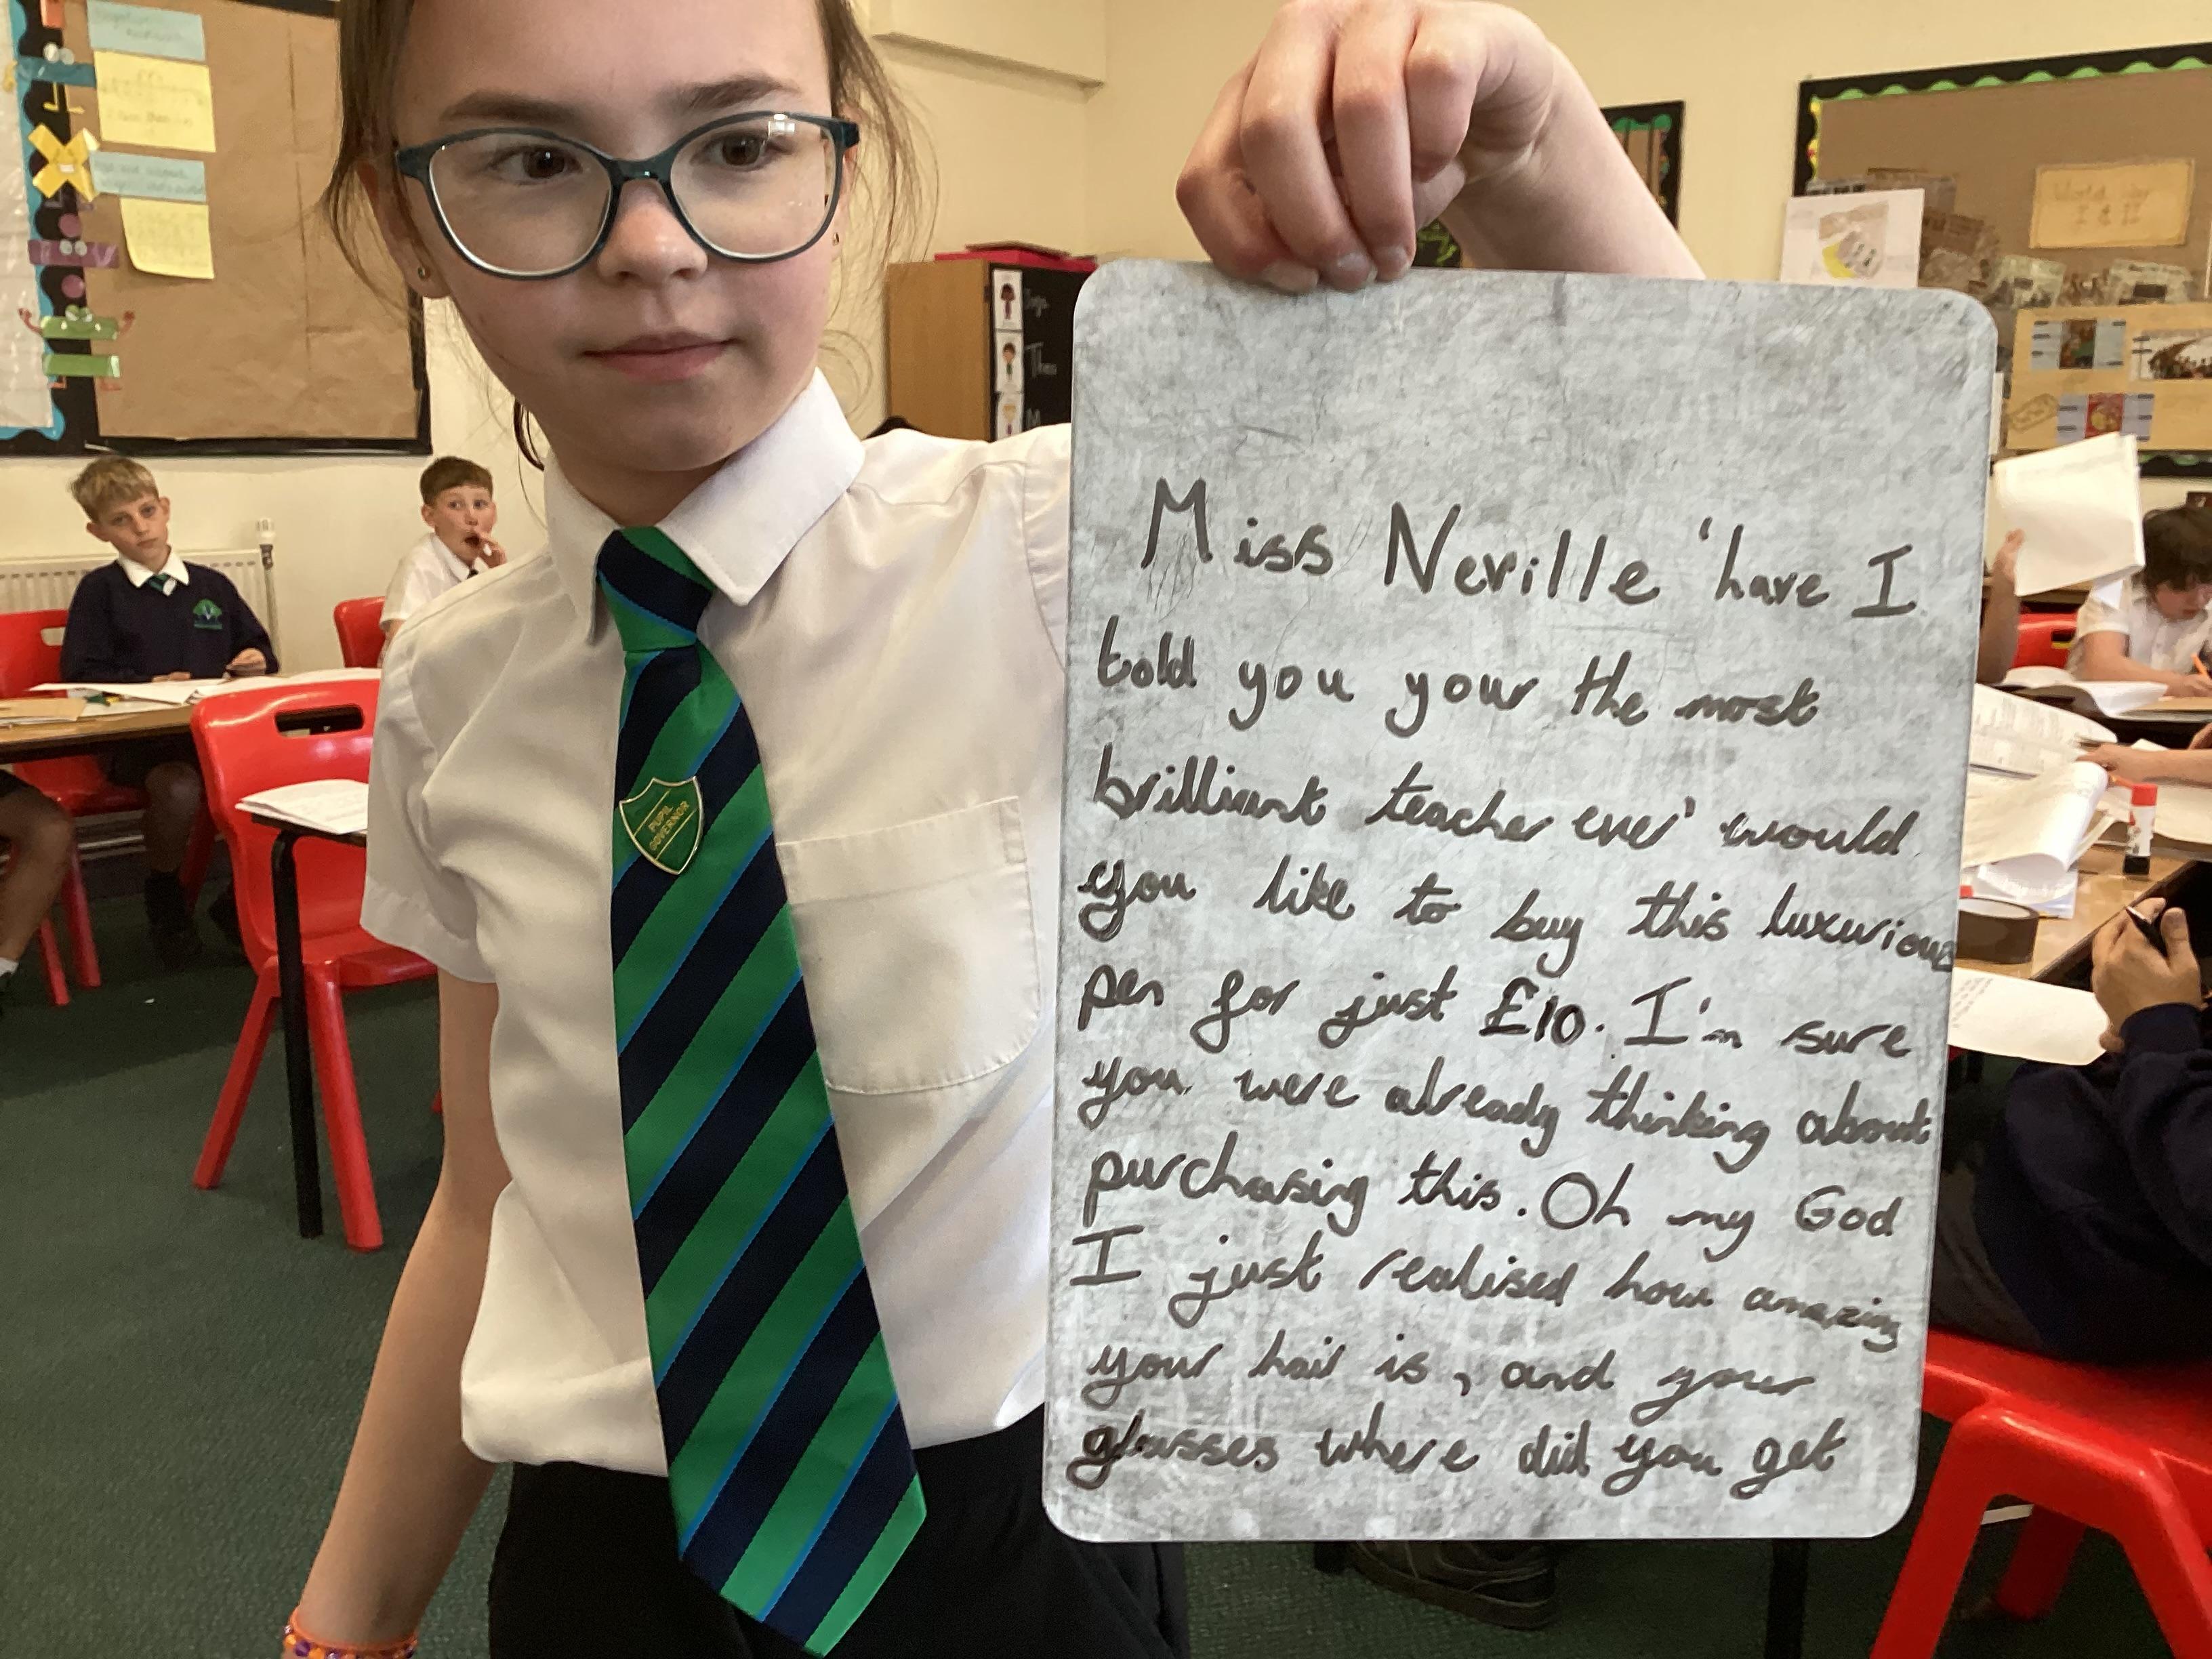 Miss Neville 'have I
told you your the most
brilliant teacher ever' would
you like to buy this luxurious
pen for just £10. I'm sure
you were already thinking about
purchasing this. Oh my God
I just realised how amazing
your hair is, and your
glasses where did you get
PUPIL
GOVERNOR